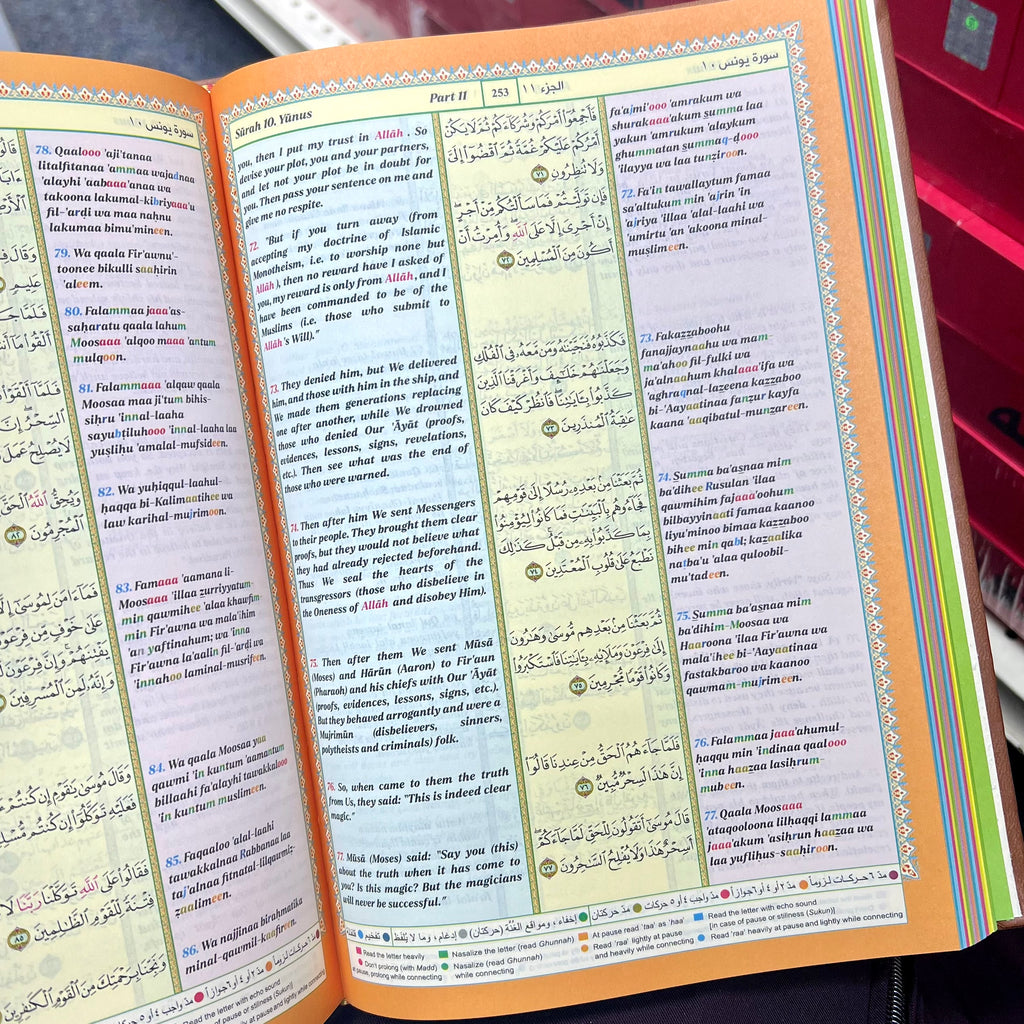 سورة يونس ١٠
78. Qaalooo 'aji'tanaa
litalfitanaa 'ammaa wajadnaa
'alayhi 'aabaaa'anaa wa
takoona lakumal-kibriyaaa'u
fil-'arḍi wa maa naḥnu
lakumaa bimu'mineen.
79. Wa qaala Fir'awnu'-
toonee bikulli saaḥirin
'aleem.
80. Falammaa jaaa'as-
saḥaratu qaala lahum
Moosaaa 'alqoo maaa 'antum
mulqoon.
81. Falammaaa 'alqaw qaala
Moosaa maa ji'tum bihis-
siḥru 'innal-laaha
sayubṭiluhooo 'innal-laaha laa
yuṣliḥu 'amalal-mufsideen.
82. Wa yuḥiqqul-laahul-
ḥaqqa bi-Kalimaatihee wa
law karihal-mujrimoon.
83. Famaaa 'aamana li-
Moosaaa 'illaa zurriyyatum-
min qawmihee 'alaa khawfim-
min Fir'awna wa mala'ihim
'an yaftinahum; wa 'inna
Fir'awna la'aalin fil-'arḍi wa
'innahoo laminal-musrifeen.
84. Wa qaala Moosaa yaa
qawmi 'in kuntum 'aamantum
billaahi fa'alayhi tawakkalooo
'in kuntum muslimeen.
85. Faqaaloo 'alal-laahi
tawakkalnaa Rabbanaa laa
taj'alnaa fitnatal-lilqawmiẓ-
ẓaalimeen.
86. Wa najjinaa biraḥmatika
minal-qawmil-kaafireen.
Sûrah 10. Yûnus
Part 11
253
الجزء ١١
سورة يونس ١٠
you, then I put my trust in Allâh . So
devise your plot, you and your partners,
and let not your plot be in doubt for
you. Then pass your sentence on me and
give me no respite.
72. "But if you turn away (from
accepting my doctrine of Islamic
Monotheism, i.e. to worship none but
Allâh ), then no reward have I asked of
you, my reward is only from Allâh, and I
have been commanded to be of the
Muslims (i.e. those who submit to
Allâh's Will)."
73. They denied him, but We delivered
him, and those with him in the ship, and
We made them generations replacing
one after another, while We drowned
those who denied Our 'Âyât (proofs,
evidences, lessons, signs, revelations,
etc.). Then see what was the end of
those who were warned.
74. Then after him We sent Messengers
to their people. They brought them clear
proofs, but they would not believe what
they had already rejected beforehand.
Thus We seal the hearts of the
transgressors (those who disbelieve in
the Oneness of Allâh and disobey Him).
75. Then after them We sent Mûsâ
(Moses) and Hârûn (Aaron) to Fir'aun
(Pharaoh) and his chiefs with Our 'Âyât
(proofs, evidences, lessons, signs, etc.).
But they behaved arrogantly and were a
Mujrimûn (disbelievers, sinners,
polytheists and criminals) folk.
76. So, when came to them the truth
from Us, they said: "This is indeed clear
magic."
77. Mûsâ (Moses) said: "Say you (this)
about the truth when it has come to
you? Is this magic? But the magicians
will never be successful."
فَأَجْمِعُوٓا۟ أَمْرَكُمْ وَشُرَكَآءَكُمْ ثُمَّ لَا يَكُنْ
أَمْرُكُمْ عَلَيْكُمْ غُمَّةً ثُمَّ ٱقْضُوٓا۟ إِلَىَّ
وَلَا تُنظِرُونِ ٧١
فَإِن تَوَلَّيْتُمْ فَمَا سَأَلْتُكُم مِّنْ أَجْرٍ
إِنْ أَجْرِىَ إِلَّا عَلَى ٱللَّهِ وَأُمِرْتُ أَنْ
أَكُونَ مِنَ ٱلْمُسْلِمِينَ ٧٢
فَكَذَّبُوهُ فَنَجَّيْنَٰهُ وَمَن مَّعَهُۥ فِى ٱلْفُلْكِ
وَجَعَلْنَٰهُمْ خَلَٰٓئِفَ وَأَغْرَقْنَا ٱلَّذِينَ
كَذَّبُوا۟ بِـَٔايَٰتِنَا فَٱنظُرْ كَيْفَ كَانَ
عَٰقِبَةُ ٱلْمُنذَرِينَ ٧٣
ثُمَّ بَعَثْنَا مِنۢ بَعْدِهِۦ رُسُلًا إِلَىٰ قَوْمِهِمْ
فَجَآءُوهُم بِٱلْبَيِّنَٰتِ فَمَا كَانُوا۟ لِيُؤْمِنُوا۟
بِمَا كَذَّبُوا۟ بِهِۦ مِن قَبْلُ كَذَٰلِكَ
نَطْبَعُ عَلَىٰ قُلُوبِ ٱلْمُعْتَدِينَ ٧٤
ثُمَّ بَعَثْنَا مِنۢ بَعْدِهِم مُّوسَىٰ وَهَٰرُونَ
إِلَىٰ فِرْعَوْنَ وَمَلَإِي۟هِۦ بِـَٔايَٰتِنَا فَٱسْتَكْبَرُوا۟
وَكَانُوا۟ قَوْمًا مُّجْرِمِينَ ٧٥
فَلَمَّا جَآءَهُمُ ٱلْحَقُّ مِنْ عِندِنَا قَالُوٓا۟
إِنَّ هَٰذَا لَسِحْرٌ مُّبِينٌ ٧٦
قَالَ مُوسَىٰٓ أَتَقُولُونَ لِلْحَقِّ لَمَّا جَآءَكُمْ
أَسِحْرٌ هَٰذَا وَلَا يُفْلِحُ ٱلسَّٰحِرُونَ ٧٧
fa'ajmi'ooo 'amrakum wa
shurakaaa'akum summa laa
yakun 'amrukum 'alaykum
ghummatan summaq-ḍooo
'ilayya wa laa tunẓiroon.
72. Fa'in tawallaytum famaa
sa'altukum min 'ajrin 'in
'ajriya 'illaa 'alal-laahi wa
'umirtu 'an 'akoona minal-
muslimeen.
73. Fakazzaboohu
fanajjaynaahu wa mam-
ma'ahoo fil-fulki wa
ja'alnaahum khalaaa'ifa wa
'aghraqnal-lazeena kazzaboo
bi-'Aayaatinaa fanẓur kayfa
kaana 'aaqibatul-munzareen.
74. Summa ba'asnaa mim
ba'dihee Rusulan 'ilaa
qawmihim fajaaa'oohum
bilbayyinaati famaa kaanoo
liyu'minoo bimaa kazzaboo
bihee min qabl; kazaalika
naṭba'u 'alaa quloobil-
mu'tadeen.
75. Summa ba'asnaa mim
ba'dihim-Moosaa wa
Haaroona 'ilaa Fir'awna wa
mala'ihee bi-'Aayaatinaa
fastakbaroo wa kaanoo
qawmam-mujrimeen.
76. Falammaa jaaa'ahumul-
ḥaqqu min 'indinaa qaalooo
'inna haazaa lasiḥrum-
mubeen.
77. Qaala Moosaaa
'ataqooloona lilḥaqqi lammaa
jaaa'akum 'asiḥrun haazaa wa
laa yufliḥus-saaḥiroon.
مدّ ٦ حركـات لزوماً مدّ ٢ أو ٤ أو ٦ جوازاً مدّ واجب ٤ أو ٥ حركات مدّ حركتان إخفاء، ومواقع الغُنَّة (حركتان) إدغام، وما لا يُلفَظ تفخيم قلقلة
Read the letter heavily
Don't prolong (with Madd)
at pause, prolong while connecting
Nasalize the letter (read Ghunnah)
Nasalize (read Ghunnah)
while connecting
At pause read 'taa' as 'haa'
Read 'raa' lightly at pause
and heavily while connecting
Read the letter with echo sound
[in case of pause or stillness (Sukun)]
Read 'raa' heavily at pause and lightly while connecting